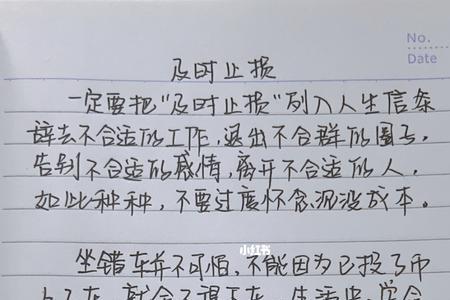 No.
Date
及时止损
一定要把“及时止损”列入人生信条
辞去不合适的工作,退出不合群的圈子。
告别不合适的感情,离开不合适的人。
如此种种,不要过度怀念沉没成本。
小红书
坐错车并不可怕,不能因为已投了币